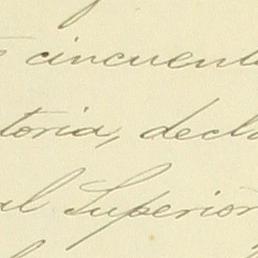 cincuenta
toria, decla
al Superior